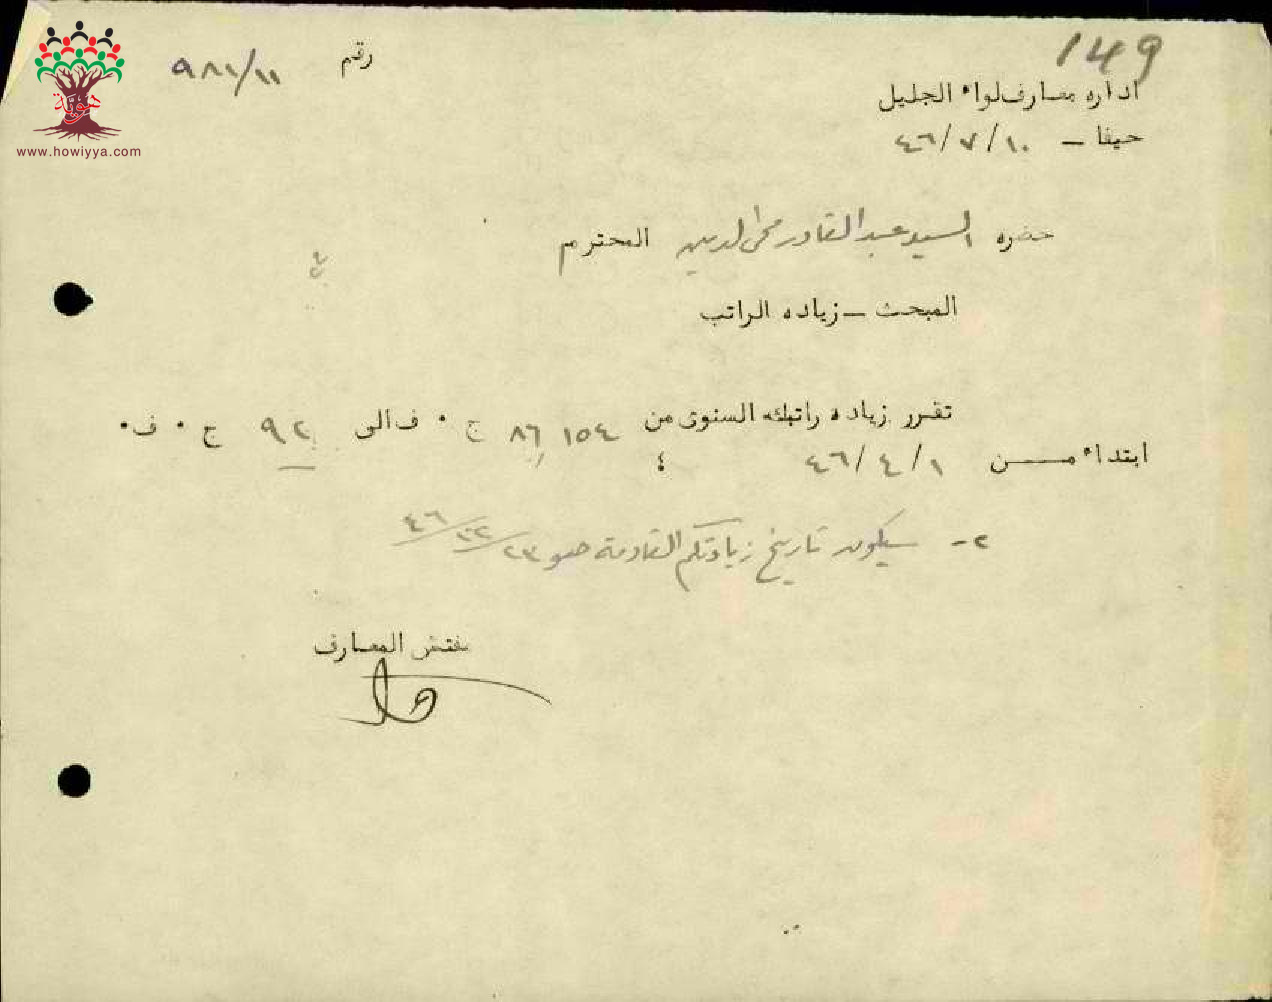 149
رقم ٩٨١/١١
اداره معارف لواء الجليل
حيفا – ٤٦/٧/١٠
حضره السيد عبد القادر محي الدين المحترم
المبحث – زياده الراتب
تقرر زياده راتبك السنوى من ٨٦,١٥٤ ج٠ ف الى ٩٢ ج٠ ف٠
ابتداء من ٤٦/٤/١
٢- سيكون تاريخ زيادتكم القادمة هو
مفتش المعارف
هوية
www.howiyya.com